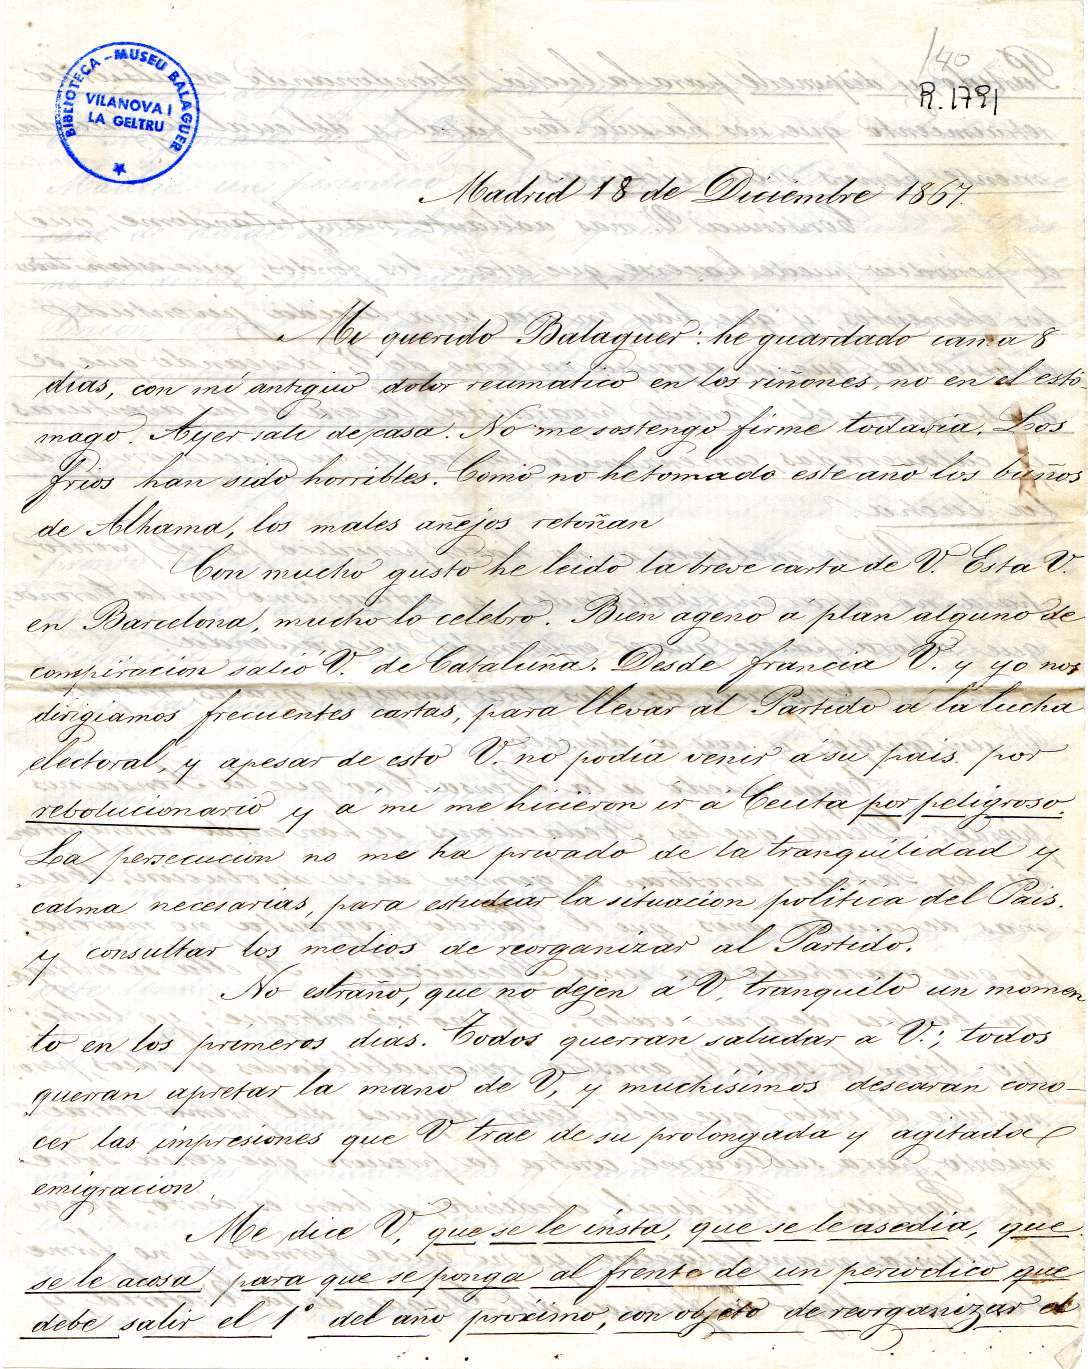 BIBLIOTECA - MUSEU BALAGUER
VILANOVA I
LA GELTRU
140
R. 1791
Madrid 18 de Diciembre 1867
Mi querido Balaguer: he guardado cama 8
dias, con mi antiguo dolor reumático en los riñones, no en el estó-
mago. Ayer salí de casa. No me sostengo firme todavia. Los
frios han sido horribles. Como no he tomado este año los baños
de Alhama, los males añejos retoñan
Con mucho gusto he leido la breve carta de V. Esta V.
en Barcelona, mucho lo celebro. Bien ageno á plan alguno de
conspiracion salió V. de Cataluña. Desde francia V. y yo nos
dirigiamos frecuentes cartas, para llevar al Partido á la lucha
electoral, y apesar de esto V. no podia venir á su pais por
rebolucionario y á mí me hicieron ir á Ceuta por peligroso.
La persecucion no me ha privado de la tranquilidad y
calma necesarias, para estudiar la situacion política del Pais.
y consultar los medios de reorganizar al Partido.
No estraño, que no dejen á V, tranquilo un momen
to en los primeros dias. Todos querrán saludar á V.; todos
querran apretar la mano de V, y muchísimos desearán cono-
cer las impresiones que V trae de su prolongada y agitada
emigracion.
Me dice V, que se le insta, que se le asedia, que
se le acosa para que se ponga al frente de un periodico que
debe salir el 1º del año próximo, con objeto de reorganizar el